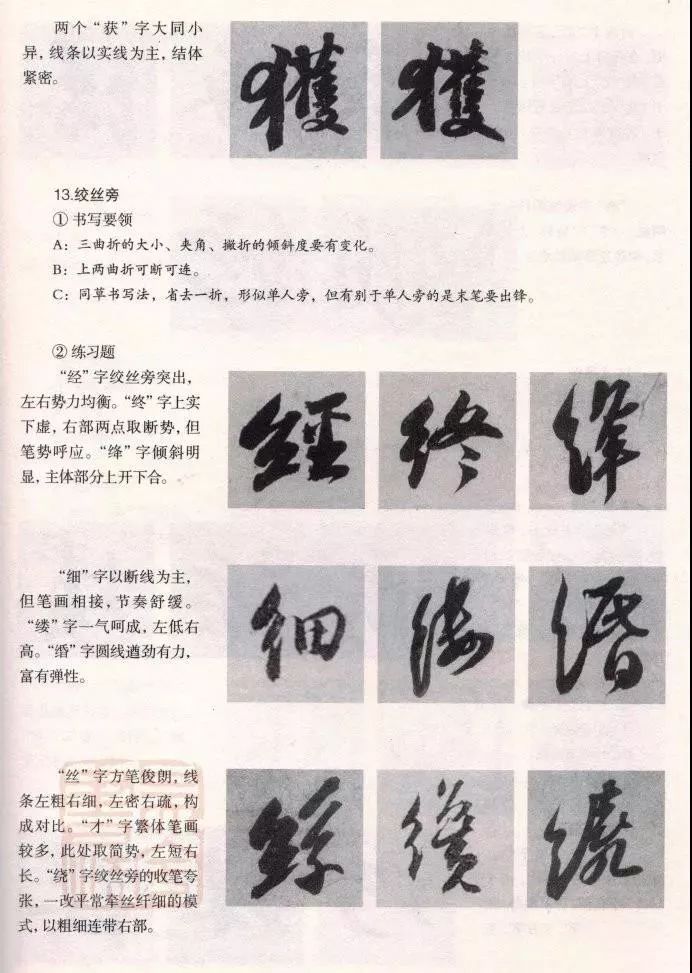 两个“获”字大同小
异，线条以实线为主，结体
紧密。
獲 獲
13.绞丝旁
① 书写要领
A：三曲折的大小、夹角、撇折的倾斜度要有变化。
B：上两曲折可断可连。
C：同草书写法，省去一折，形似单人旁，但有别于单人旁的是末笔要出锋。
② 练习题
“经”字绞丝旁突出，
左右势力均衡。“终”字上实
下虚，右部两点取断势，但
笔势呼应。“绛”字倾斜明
显，主体部分上开下合。
經 终 绛
“细”字以断线为主，
但笔画相接，节奏舒缓。
“缕”字一气呵成，左低右
高。“缗”字圆线遒劲有力，
富有弹性。
细 缕 缗
“丝”字方笔俊朗，线
条左粗右细，左密右疏，构
成对比。“才”字繁体笔画
较多，此处取简势，左短右
长。“绕”字绞丝旁的收笔夸
张，一改平常牵丝纤细的模
式，以粗细连带右部。